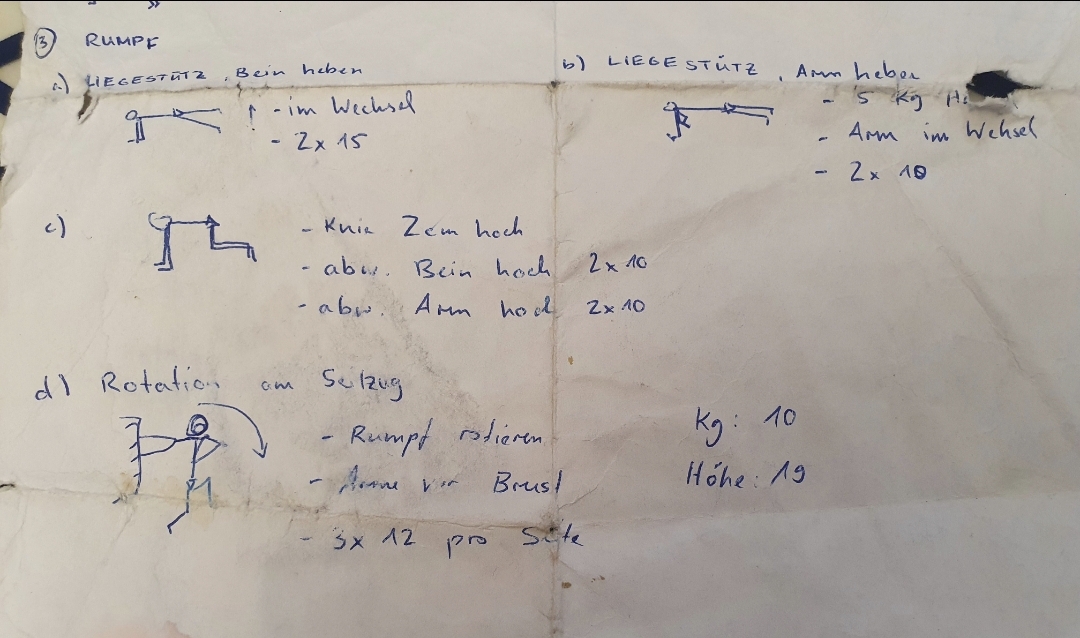 ③ RUMPF
a) LIEGESTÜTZ, Bein heben
- im Wechsel
- 2x 15
b) LIEGESTÜTZ, Arm heben
- 5 Kg
- Arm im Wehsel
- 2x 10
c)
- Knie 2cm hoch
- abw. Bein hoch 2x10
- abw. Arm hoch 2x10
d) Rotation am Seilzug
- Rumpf rotieren
- Arme vor Brust
- 3x 12 pro Seite
Kg: 10
Höhe: 19